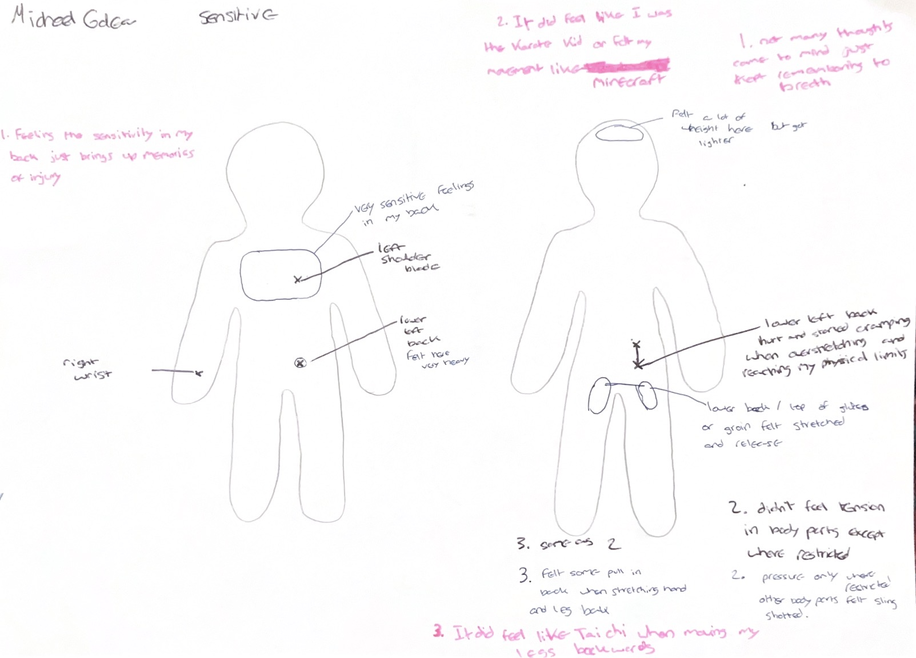 Michael
sensitive
2. It did feel like I was
the Karate Kid or felt my
movment like
minecraft
1. not many thoughts
came to mind just
kept remembering to
breath
1. Feeling the sensitivity in my
back just brings up memories
of injury
very sensitive feelings
in my back
left
shoulder
blade
lower
left
back
felt here
very heavy
right
wrist
felt a lot of
weight here but got
lighter
lower left back
hurt and started cramping
when overstretching and
reaching my physical limits
lower back / top of glutes
or groin felt stretched
and release
2. didn't feel tension
in body parts except
where restricted
2. pressure only where
restricted
other body parts felt sling
shotted.
3. same as 2
3. Felt some pull in
back when stretching hand
and leg back
3. It did feel like Taichi when moving my
legs backwards